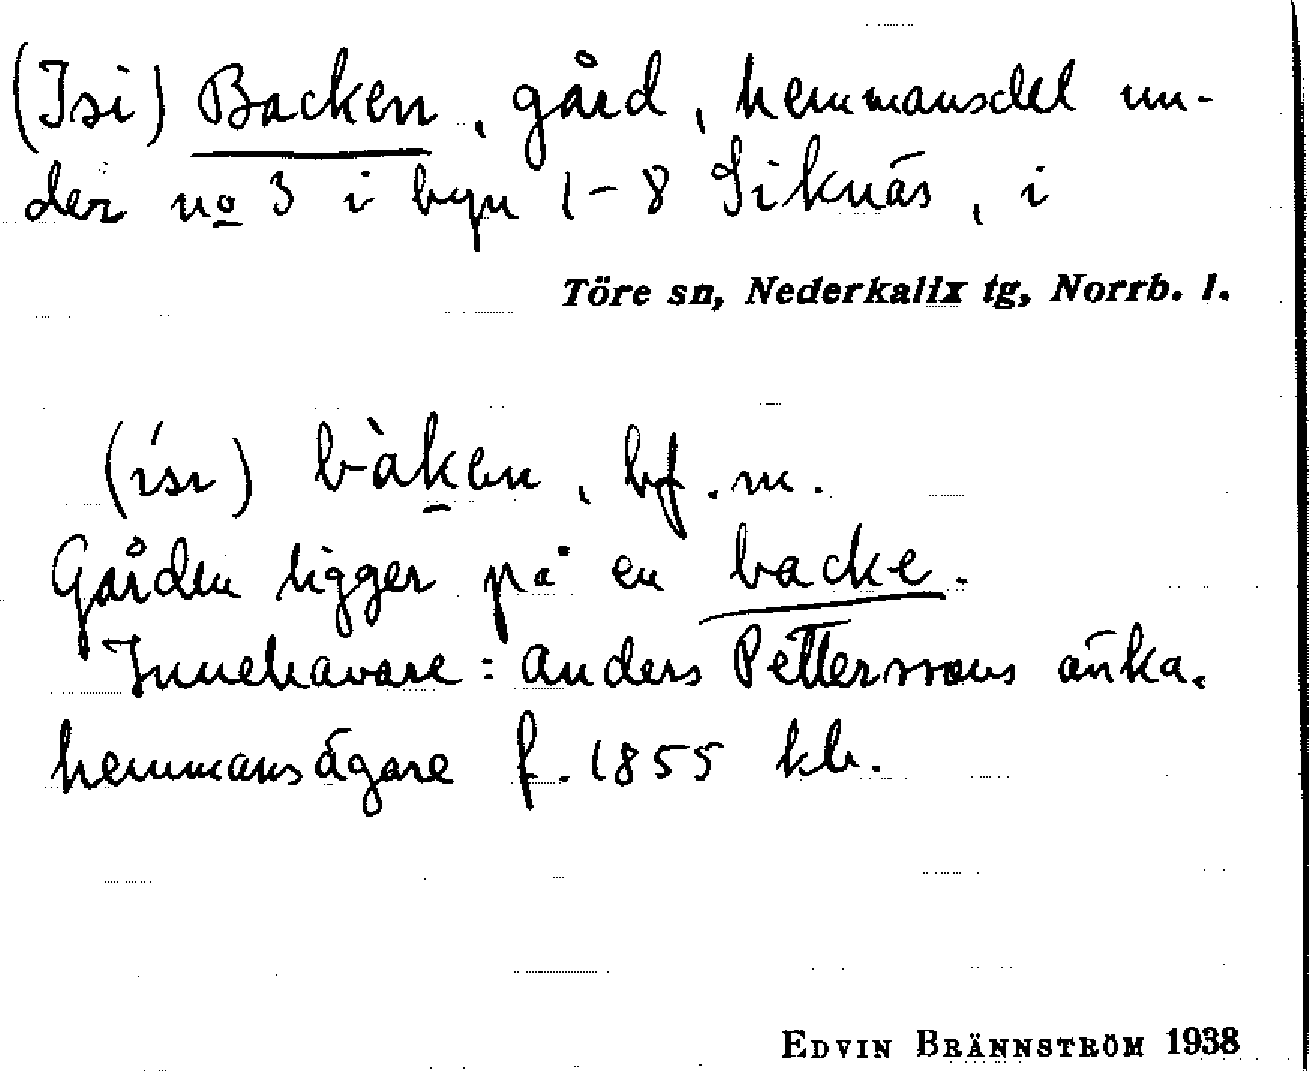 (Isi) Backen, gård, hemmansdel un-
der no 3 i byn 1-8 Siknäs, i
Töre sn, Nederkalix tg, Norrb. l.
(ísı) bàken, bf. m.
Gården ligger på en backe.
Innehavare: Anders Petterssons änka,
hemmansägare f. 1855 klr.
EDVIN BRÄNNSTRÖM 1938